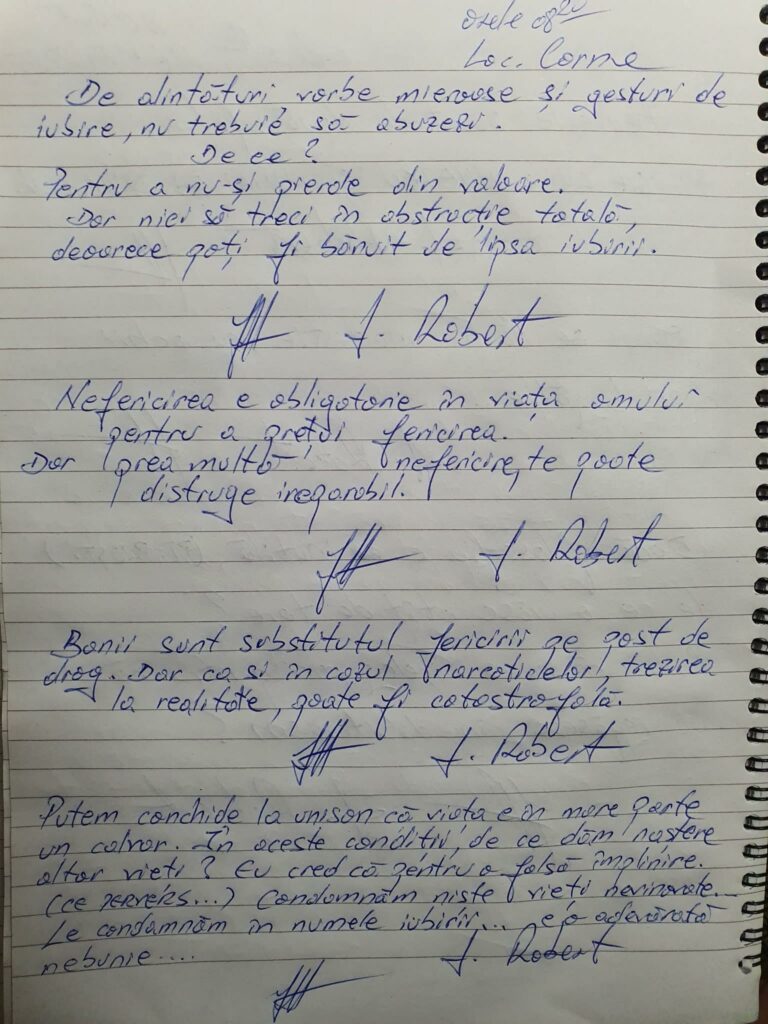 orele 08²⁰
Loc. Corme
De alintături, vorbe mieroase și gesturi de
iubire, nu trebuie să abuzezi.
De ce?
Pentru a nu-și pierde din valoare.
Dar nici să treci în abstracție totală,
deoarece poți fi bănuit de lipsa iubirii.
J. Robert
Nefericirea e obligatorie în viața omului
pentru a prețui fericirea.
Dar prea multă nefericire, te poate
distruge ireparabil.
J. Robert
Banii sunt substitutul fericirii pe post de
drog. Dar ca si în cazul narcoticelor, trezirea
la realitate, poate fi catastrofală.
J. Robert
Putem conchide la unison că viața e în mare parte
un calvar. În aceste conditii, de ce dăm naștere
altor vieti? Eu cred că pentru o falsă împlinire.
(CE PERVERS...) Condamnăm niste vieți nevinovate...
Le condamnăm în numele iubirii... e o adevărată
nebunie....
J. Robert